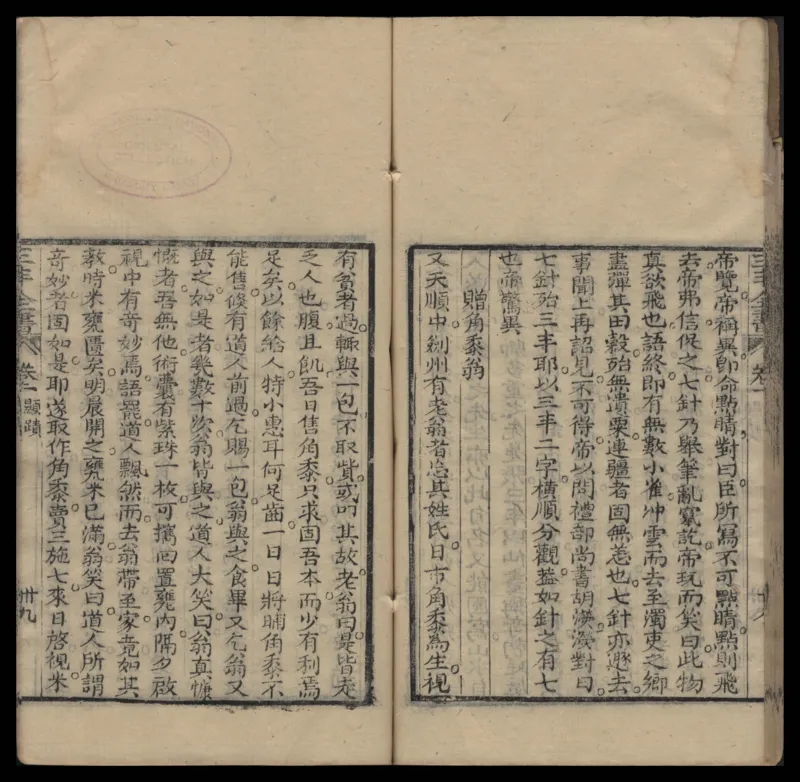 三丰全書 卷一
帝覽帝稱異即命點睛對曰臣所寫不可點睛點則飛
去帝弗信促之七針乃舉筆亂竄訖帝玩而笑曰此物
真欲飛也語終即有無數小雀冲雲而去至濁吏之鄉
盡殫其田穀殆無漬粟連疆者固無恙也七針亦遯去
事聞上再詔見不可得帝以問禮部尚書胡濙濙對曰
七針殆三丰耶以三丰二字橫順分觀葢如針之有七
也帝驚異
贈角黍翁
又天順中劍州有老翁者忘其姓氏日市角黍為生視
有貧者過輒與一包不取貲或叩其故老翁曰是皆走
乏人也腹且飢吾日售角黍只求固吾本而少有利焉
足矣以餘給人特小惠耳何足齒一日日將晡角黍不
能售倏有道人前過乞賜一包翁與之食畢又乞翁又
與之如是者幾數十次翁皆與之道人大笑曰翁真慷
慨者吾無他術囊有紫珠一枚可攜回置甕內隔夕啟
視中有奇妙焉語罷道人飄然而去翁帶至家竟如其
教時米甕匱矣明晨開之甕米已滿翁笑曰道人所謂
奇妙者固如是耶遂取作角黍賣三施七來日啓視米
三丰全書 卷一 顯蹟 卅九